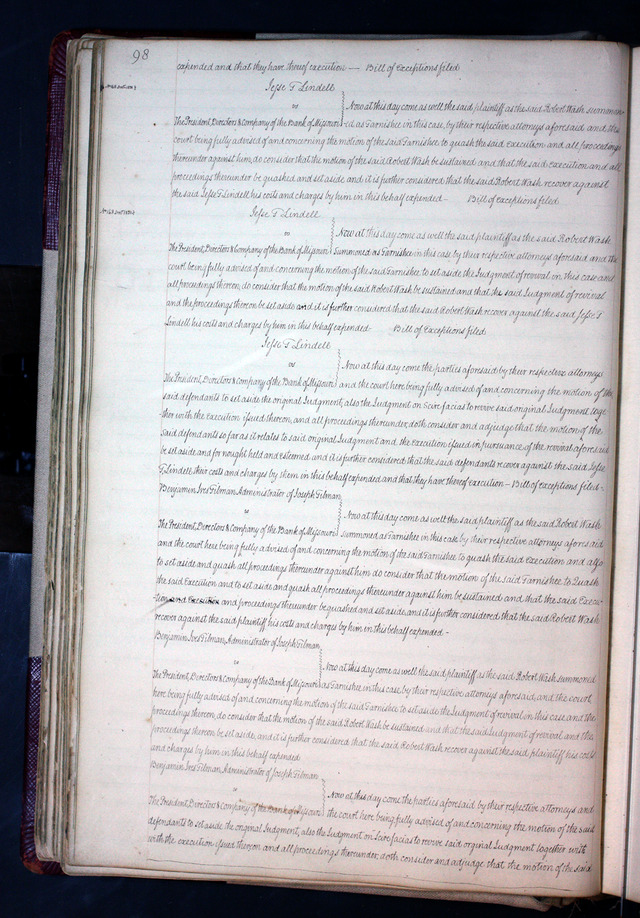 98
expended and that they have thereof execution — Bill of Exceptions filed
Jesse T Lindell
vs
Now at this day come as well the said plaintiff as the said Robert Wash summon-
The President, Directors & Company of the Bank of Missouri
-ed as Garnishee in this case, by their respective attorneys aforesaid and the
court being fully advised of and concerning the motion of the said Garnishee to quash the said Execution and all proceedings
thereunder against him, do consider that the motion of the said Robert Wash be sustained and that the said Execution and all
proceedings thereunder be quashed and set aside and it is further considered that the said Robert Wash recover against
the said Jesse T Lindell his costs and charges by him in this behalf expended — Bill of exceptions filed
Jesse T Lindell
vs
Now at this day come as well the said plaintiff as the said Robert Wash
The President, Directors & Company of the Bank of Missouri
summoned as Garnishee in this case by their respective attorneys aforesaid and the
court being fully advised of and concerning the motion of the said Garnishee to set aside the Judgment of revival in this case and
all proceedings thereon, do consider that the motion of the said Robert Wash be sustained and that the said Judgment of revival
and the proceedings thereon be set aside and it is further considered that the said Robert Wash recover against the said Jesse T
Lindell his costs and charges by him in this behalf expended Bill of Exceptions filed
Jesse T Lindell
vs
Now at this day come the parties aforesaid by their respective attorneys
The President, Directors & Company of the Bank of Missouri
and the court here being fully advised of and concerning the motion of the
said defendants to set aside the original Judgment, also the Judgment on Scire facias to revive said original Judgment toge-
ther with the Execution issued thereon, and all proceedings thereunder, doth consider and adjudge that the motion of the
said defendants so far as it relates to said original Judgment and the Execution issued in pursuance of the revival aforesaid
be set aside and for nought held and esteemed and it is further considered that the said defendants recover against the said Jesse
T Lindell their costs and charges by them in this behalf expended and that they have thereof execution — Bill of exceptions filed -
Benjamin Ives Gilman, Administrator of Joseph Gilman
vs
Now at this day come as well the said plaintiff as the said Robert Wash
The President, Directors & Company of the Bank of Missouri
summoned as Garnishee in this case by their respective attorneys aforesaid
and the court here being fully advised of and concerning the motion of the said Garnishee to quash the said Execution and also
to set aside and quash all proceedings thereunder against him do consider that the motion of the said Garnishee to Quash
the said Execution and to set aside and quash all proceedings thereunder against him be sustained and that the said Execu-
tion and Execution and proceedings thereunder be quashed and set aside and it is further considered that the said Robert Wash
recover against the said plaintiff his costs and charges by him in this behalf expended -
Benjamin Ives Gilman, Administrator of Joseph Gilman
vs
Now at this day come as well the said plaintiff as the said Robert Wash summoned
The President, Directors & Company of the Bank of Missouri
as Garnishee in this case by their respective attorneys aforesaid, and the court
here being fully advised of and concerning the motion of the said Garnishee to set aside the Judgment of revival in this case and the
proceedings thereon, do consider that the motion of the said Robert Wash be sustained and that the said Judgment of revival and the
proceedings thereon be set aside, and it is further considered that the said Robert Wash recover against the said plaintiff his costs
and charges by him in this behalf expended
Benjamin Ives Gilman, Administrator of Joseph Gilman
vs
Now at this day come the parties aforesaid by their respective attorneys and
The President, Directors & Company of the Bank of Missouri
the court here being fully advised of and concerning the motion of the said
defendants to set aside the original Judgment, also the Judgment on Scire facias to revive said original Judgment together with
with the execution issued thereon and all proceedings thereunder, doth consider and adjudge that the motion of the said